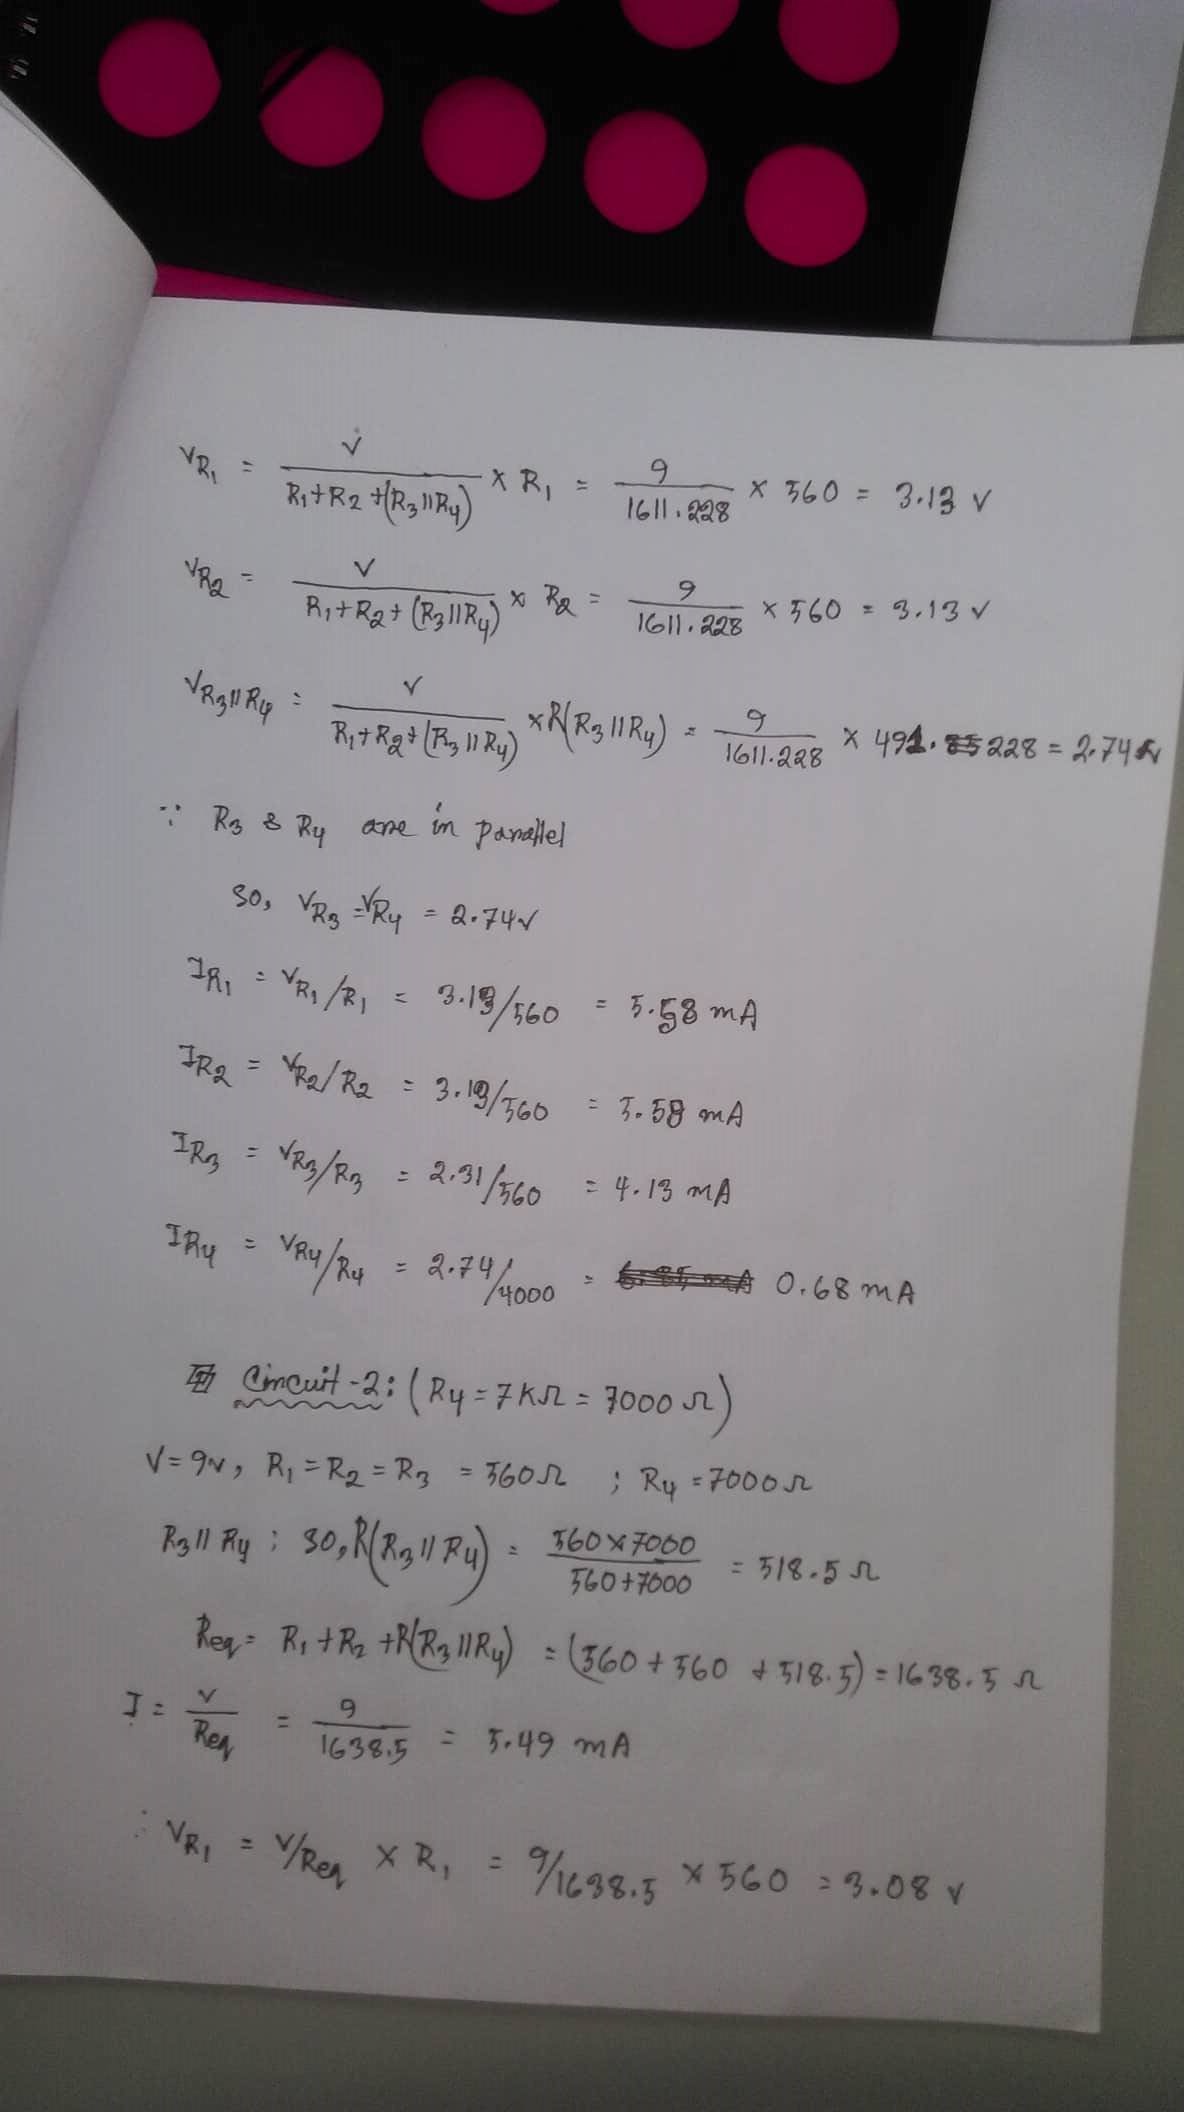 V_R1 = V / (R1+R2+(R3||R4)) × R1 = 9 / 1611.228 × 560 = 3.13 V
V_R2 = V / (R1+R2+(R3||R4)) × R2 = 9 / 1611.228 × 560 = 3.13 V
V_R3||R4 = V / (R1+R2+(R3||R4)) × R(R3||R4) = 9 / 1611.228 × 491.228 = 2.74 V
∵ R3 & R4 are in parallel
so, V_R3 = V_R4 = 2.74 V
I_R1 = V_R1/R1 = 3.13/560 = 5.58 mA
I_R2 = V_R2/R2 = 3.13/560 = 5.58 mA
I_R3 = V_R3/R3 = 2.31/560 = 4.13 mA
I_R4 = V_R4/R4 = 2.74/4000 = 0.68 mA
Circuit-2: (R4 = 7KΩ = 7000 Ω)
V = 9v, R1 = R2 = R3 = 560Ω ; R4 = 7000Ω
R3||R4 ; so, R(R3||R4) = 560×7000 / 560+7000 = 518.5 Ω
Req = R1+R2+R(R3||R4) = (560 + 560 + 518.5) = 1638.5 Ω
I = V / Req = 9 / 1638.5 = 5.49 mA
∴ V_R1 = V/Req × R1 = 9/1638.5 × 560 = 3.08 V